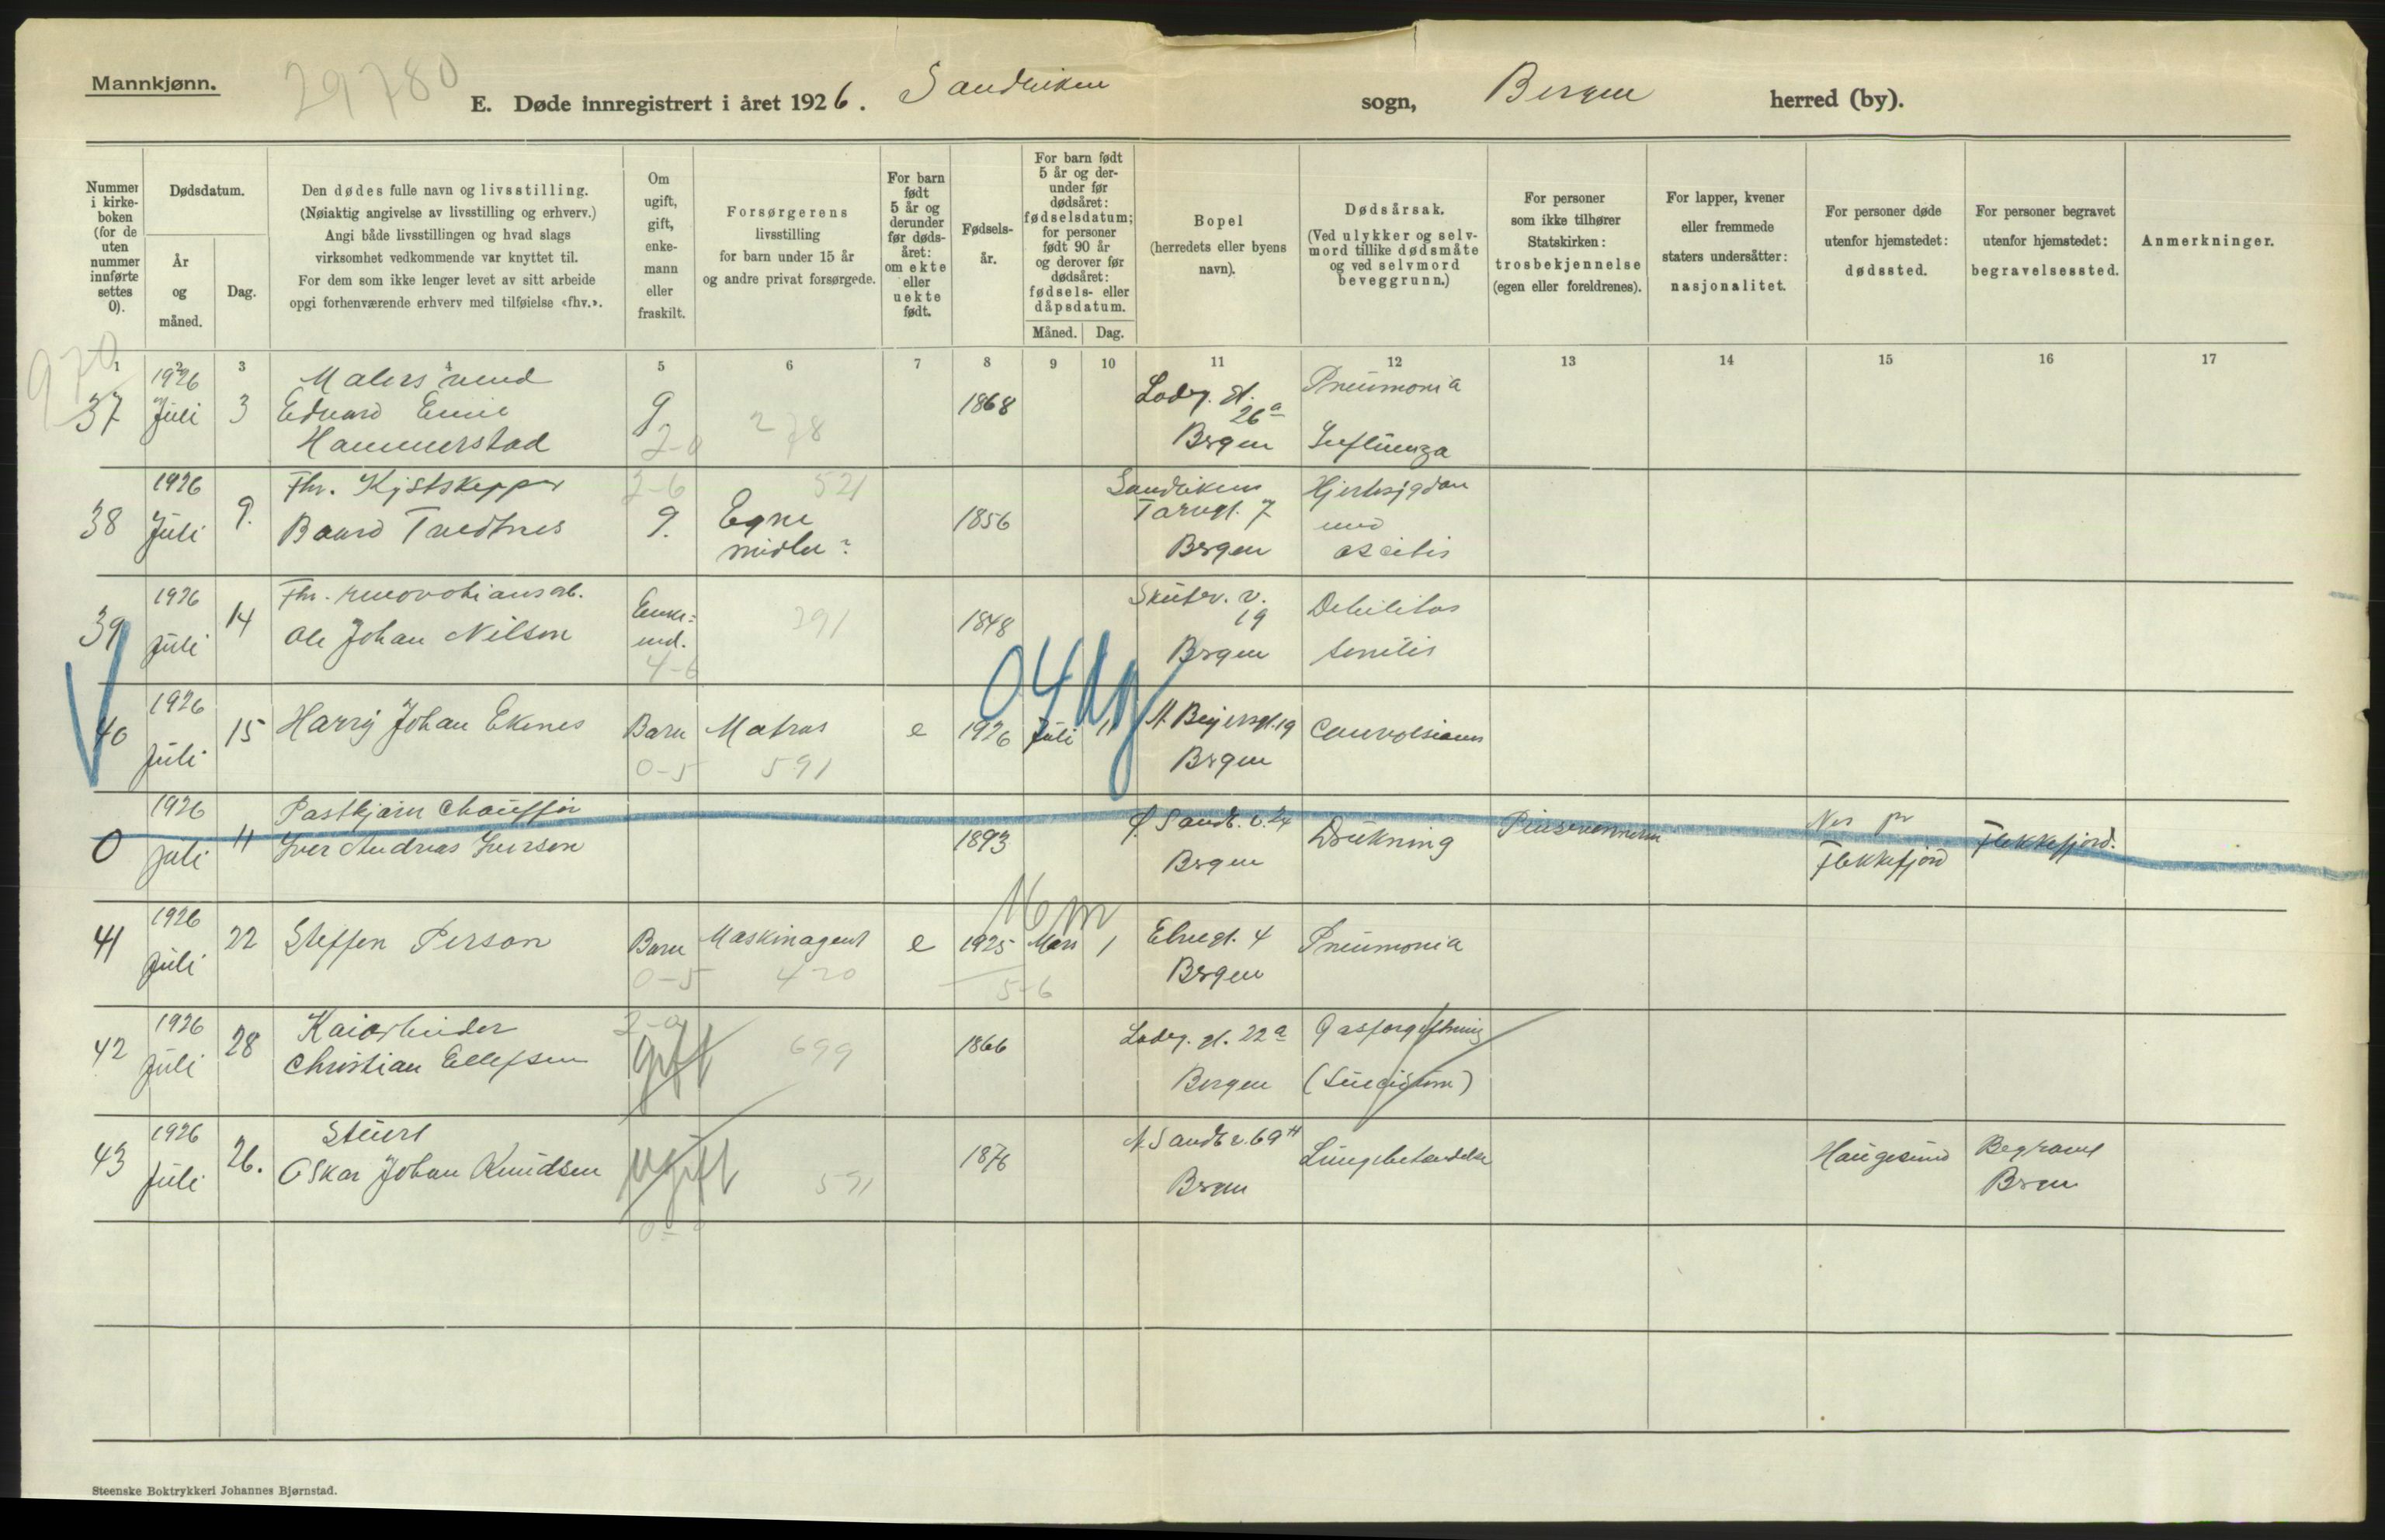 Mannkjønn.
29780
E. Døde innregistrert i året 1926. Sandviken sogn, Bergen herred (by).
Nummer i kirkeboken (for de uten nummer innførte settes 0).
Dødsdatum.
År og måned.
Dag.
Den dødes fulle navn og livsstilling.
(Nøiaktig angivelse av livsstilling og erhverv.)
Angi både livsstillingen og hvad slags
virksomhet vedkommende var knyttet til.
For dem som ikke lenger levet av sitt arbeide
opgi forhenværende erhverv med tilføielse «fhv.».
Om ugift, gift, enkemann eller fraskilt.
Forsørgerens
livsstilling
for barn under 15 år
og andre privat forsørgede.
For barn født 5 år og derunder før dødsåret: om ekte eller uekte født.
Fødselsår.
For barn født 5 år og derunder før dødsåret: fødselsdatum; for personer født 90 år og derover før dødsåret: fødsels- eller dåpsdatum.
Måned. Dag.
Bopel
(herredets eller byens
navn).
Dødsårsak.
(Ved ulykker og selvmord tillike dødsmåte og ved selvmord beveggrunn.)
For personer
som ikke tilhører
Statskirken:
trosbekjennelse
(egen eller foreldrenes).
For lapper, kvener
eller fremmede
staters undersåtter:
nasjonalitet.
For personer døde
utenfor hjemstedet:
dødssted.
For personer begravet
utenfor hjemstedet:
begravelsessted.
Anmerkninger.
1 2 3 4 5 6 7 8 9 10 11 12 13 14 15 16 17
970
37 1926 Juli 3 Malersvend Edvard Emil Hammerstad g. 278 1868 Ladeg. gt. 26a Bergen Pneumonia Influenza
38 1926 Juli 9. Fhv. Kystskipper Baard g. Egne midler? 521 1856 Sandvikens Torvgt. 7 Bergen Hjertesygdom med ascites
39 1926 Juli 14 Fhv. renovationsarb. Ole Johan Nilsen Enkemd. 4-6 391 1848 Skutev. v. 19 Bergen Debilitas senilis
40 1926 Juli 15 Harry Johan Ekenes Barn 0-5 Matros 591 e 1926 Juli 11 04dg Beyersgt. 19 Bergen Convulsiones
0 1926 Juli 11 Postkjører Chauffør Iver Andreas Iversen 1893 Sandv. v. 24 Bergen Drukning Pinsevennerne pr Flekkefjord Flekkefjord.
41 1926 Juli 22 Steffen Person Barn 0-5 Maskinagent 420 e 1925 Mars 1 16 m 5-6 Elvegt. 4 Bergen Pneumonia
42 1926 Juli 28 Kaiarbeider Christian Ellefsen gift 699 1866 Ladeg. gt. 22a Bergen Gasforgiftning (Suicidium)
43 1926 Juli 26. Stuert Oskar Johan Knudsen ugift 591 1876 N. Sandv. v. 69 Bergen Lungebetændelse Haugesund Begravet Bergen
Steenske Boktrykkeri Johannes Bjørnstad.